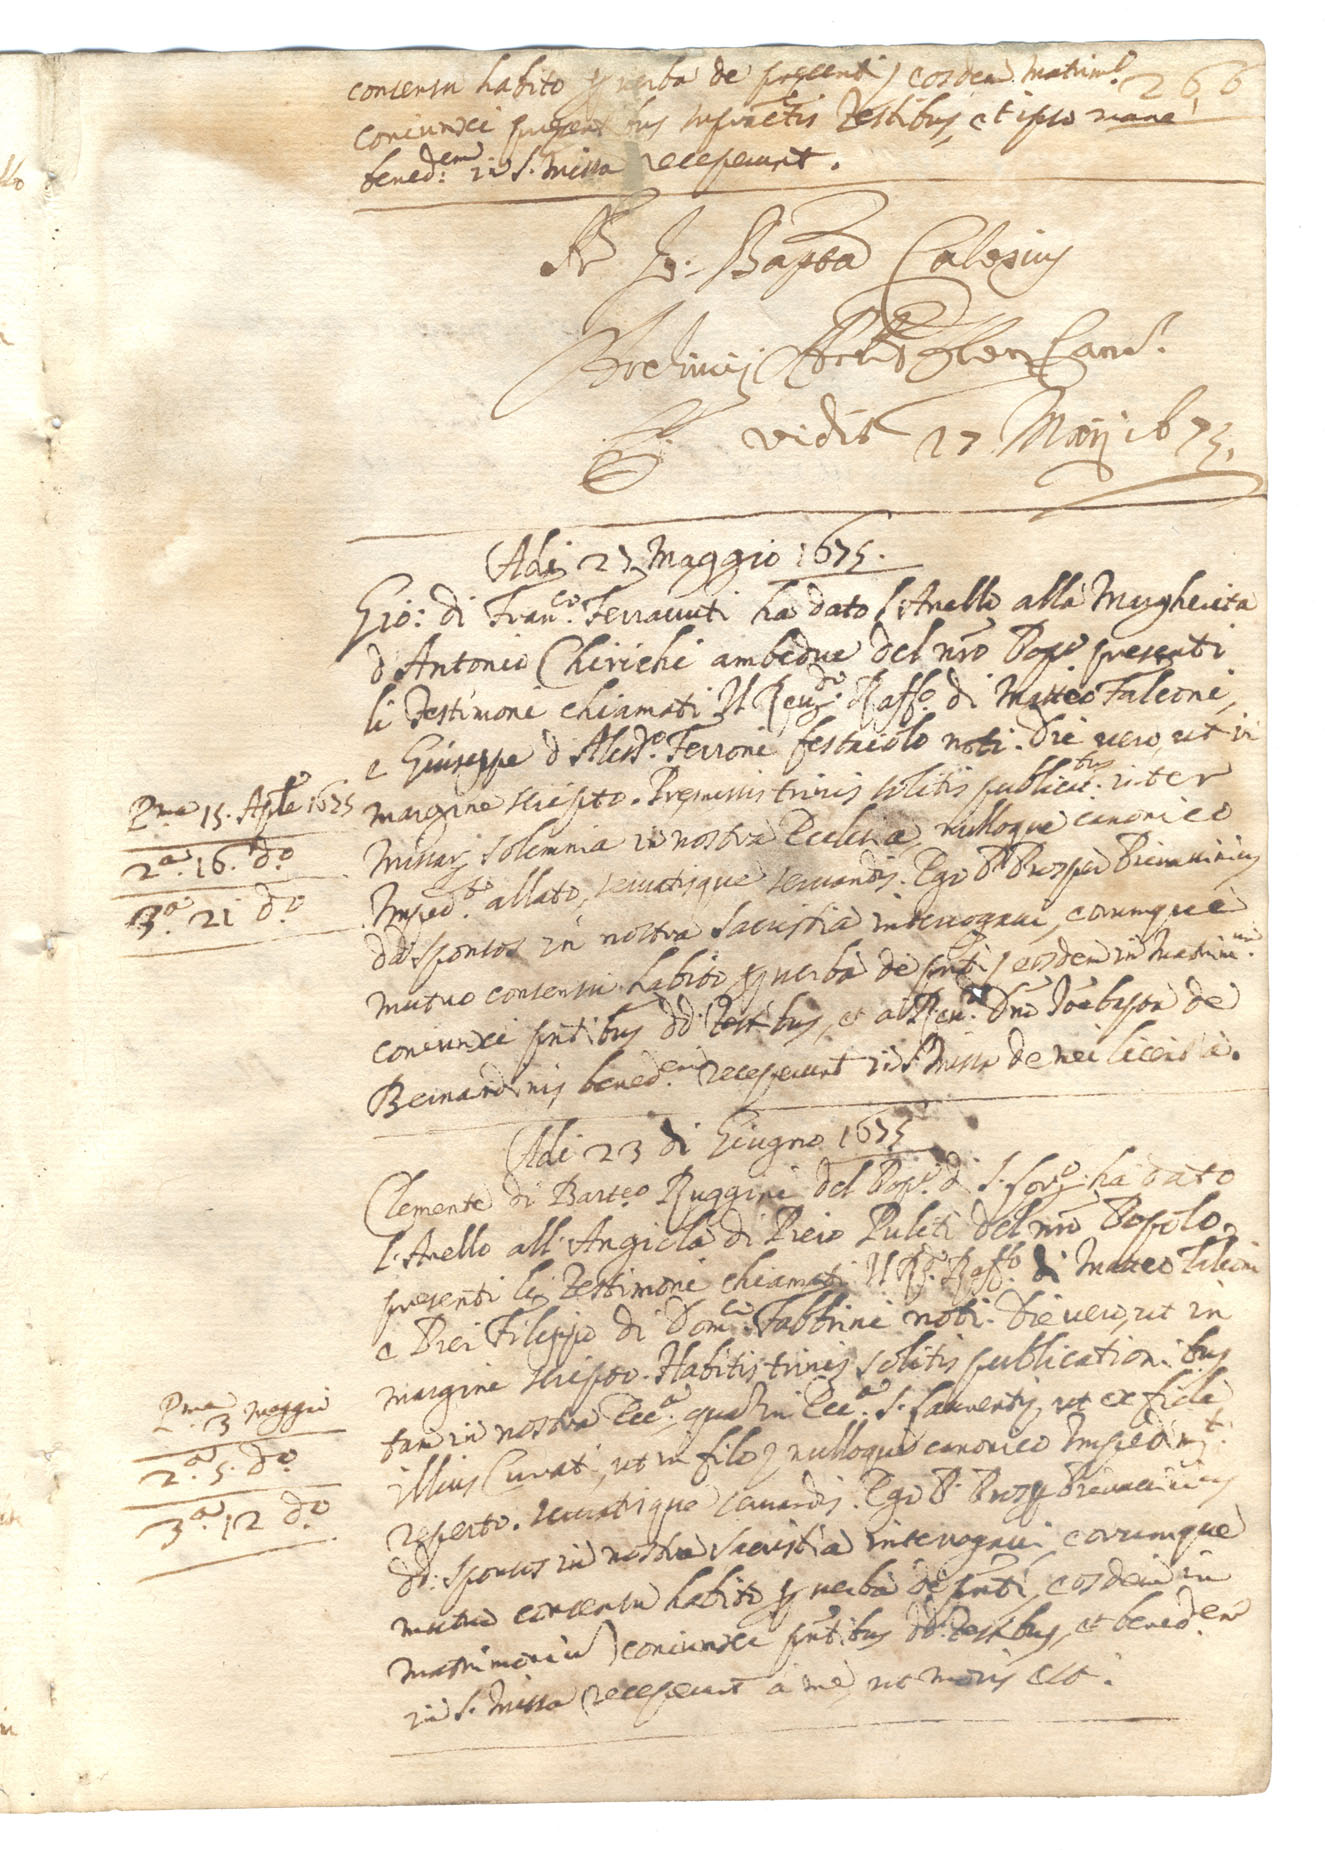 266
consensu habito p verba de presenti, eosdem matrim.º
coniunxi present bus infra.tis Testibus, et ipso mane
bened.em in S. Missa receperunt.
Jo: Bapta
vidit 27 Maij 1675.
Adi 27 Maggio 1675.
Gio: di Fran.co Ferravuti ha dato l'Anello alla Margherita
d'Antonio Chirichi ambedue del nro Popº presenti
li Testimoni chiamati Il Reu.do Raff.º di Matteo Falconi,
e Giuseppe d'Aless.º Ferroni festaiolo noti. Die vero, ut in
margine scripto. Premissis trinis solitis publicat.bus inter
Missar. solemnia in nostra Ecclesia, nulloque canonico
Imped.to allato, servatisque servandis. Ego P. Prosper
dd. sponsos in nostra sacristia interrogavi, eorumque
mutuo consensu habito p verba de pnti, eosdem in Matrim.um
coniunxi pntibus dd. Testibus, et a Reu.do Dno Joe bapta de
Bernardinis bened.em receperunt in S. Missa de mei licentia.
Pma 15. Aple 1675
2.a 16. d.º
3.a 21 d.º
Adi 23 di Giugno 1675
Clemente di Barteo Ruggini del Popº d S. Lor.º ha dato
l'Anello all'Angiola di Piero Puliti del nro Popolo,
presenti li Testimoni chiamati Il R.do Raff.º di Matteo Falconi
e Pier Filippo di Dom.co Fabbrini noti. Die vero, ut in
margine scripto. Habitis trinis solitis publicationibus
tam in nostra Ecc.a quam in Ecc.a S. Laurentij, ut ex fide
illius Curati, ut in filo, nulloque canonico Impedim.t
reperto. servatisque servandis. Ego P. Prosp
dd. sponsos in nostra sacristia interrogavi eorumque
mutuo consensu habito p verba de pnti, eosdem in
matrimoniu coniunxi pntibus dd. Testibus, et bened.em
in S. Missa receperunt a me, ut moris est.
Pma 3 Maggio
2.a 5. d.º
3.a 12 d.º